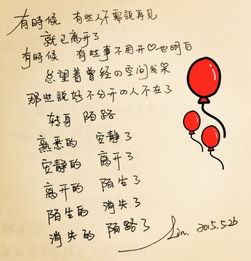 有時候 有些人不需說再见
就已离开了
有時候 有些事不用开口也明白
那些說好不分开の人不在了
转身 陌路
熟悉的 安静了
安静的 离开了
离开的 陌生了
陌生的 消失了
消失的 陌路了
Lin. 2015.5.26